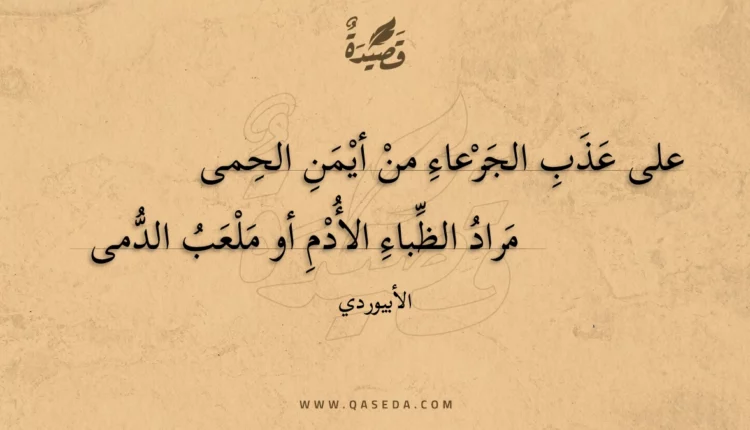 قَصِيْدَةٌ
على عَذَبِ الجَرْعاءِ منْ أيْمَنِ الحِمى
مَرادُ الظِّباءِ الأُدْمِ أو مَلْعَبُ الدُّمى
الأبيوردي
WWW.QASEDA.COM